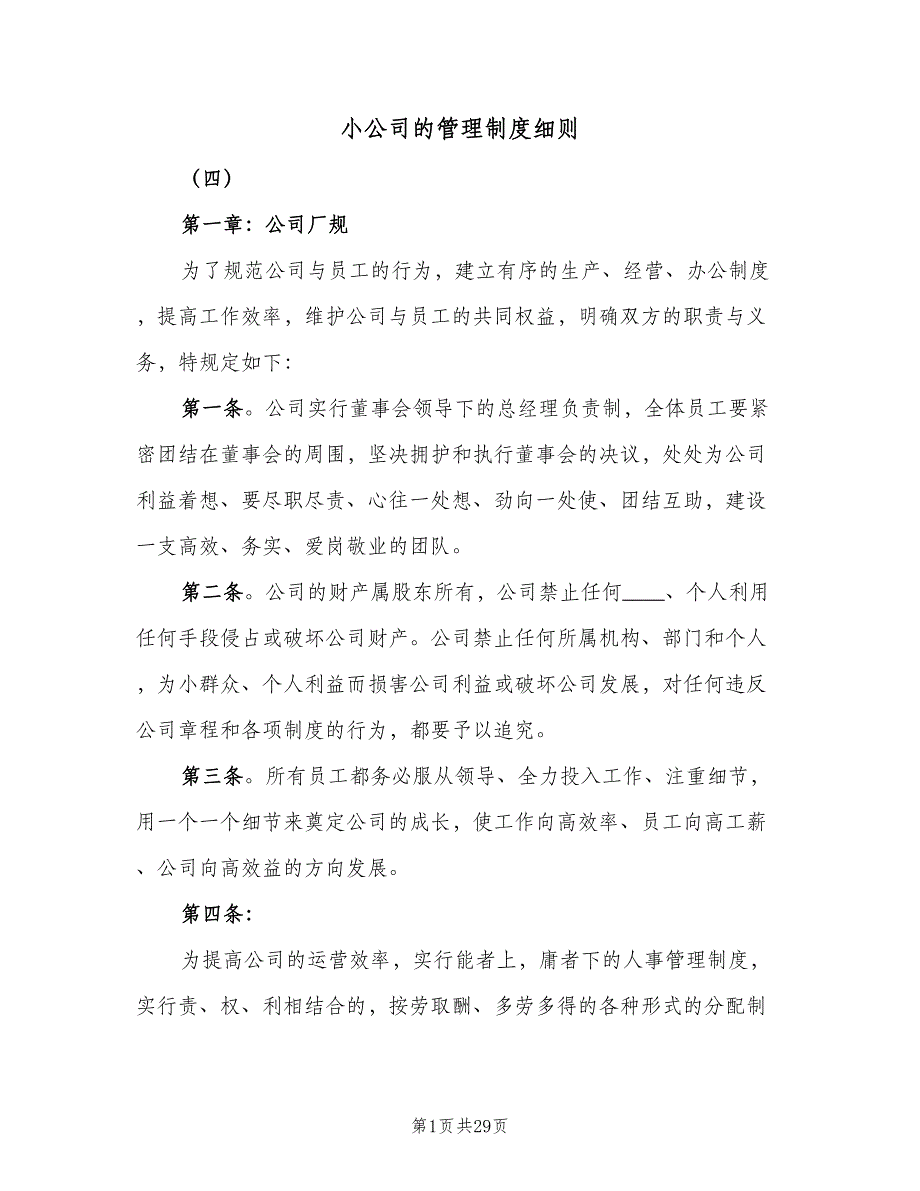 小公司的管理制度细则
（四）
第一章：公司厂规
为了规范公司与员工的行为，建立有序的生产、经营、办公制度
，提高工作效率，维护公司与员工的共同权益，明确双方的职责与义
务，特规定如下：
第一条。公司实行董事会领导下的总经理负责制，全体员工要紧
密团结在董事会的周围，坚决拥护和执行董事会的决议，处处为公司
利益着想、要尽职尽责、心往一处想、劲向一处使、团结互助，建设
一支高效、务实、爱岗敬业的团队。
第二条。公司的财产属股东所有，公司禁止任何____、个人利用
任何手段侵占或破坏公司财产。公司禁止任何所属机构、部门和个人
，为小群众、个人利益而损害公司利益或破坏公司发展，对任何违反
公司章程和各项制度的行为，都要予以追究。
第三条。所有员工都务必服从领导、全力投入工作、注重细节，
用一个一个细节来奠定公司的成长，使工作向高效率、员工向高工薪
、公司向高效益的方向发展。
第四条：
为提高公司的运营效率，实行能者上，庸者下的人事管理制度，
实行责、权、利相结合的，按劳取酬、多劳多得的各种形式的分配制
第1页共29页